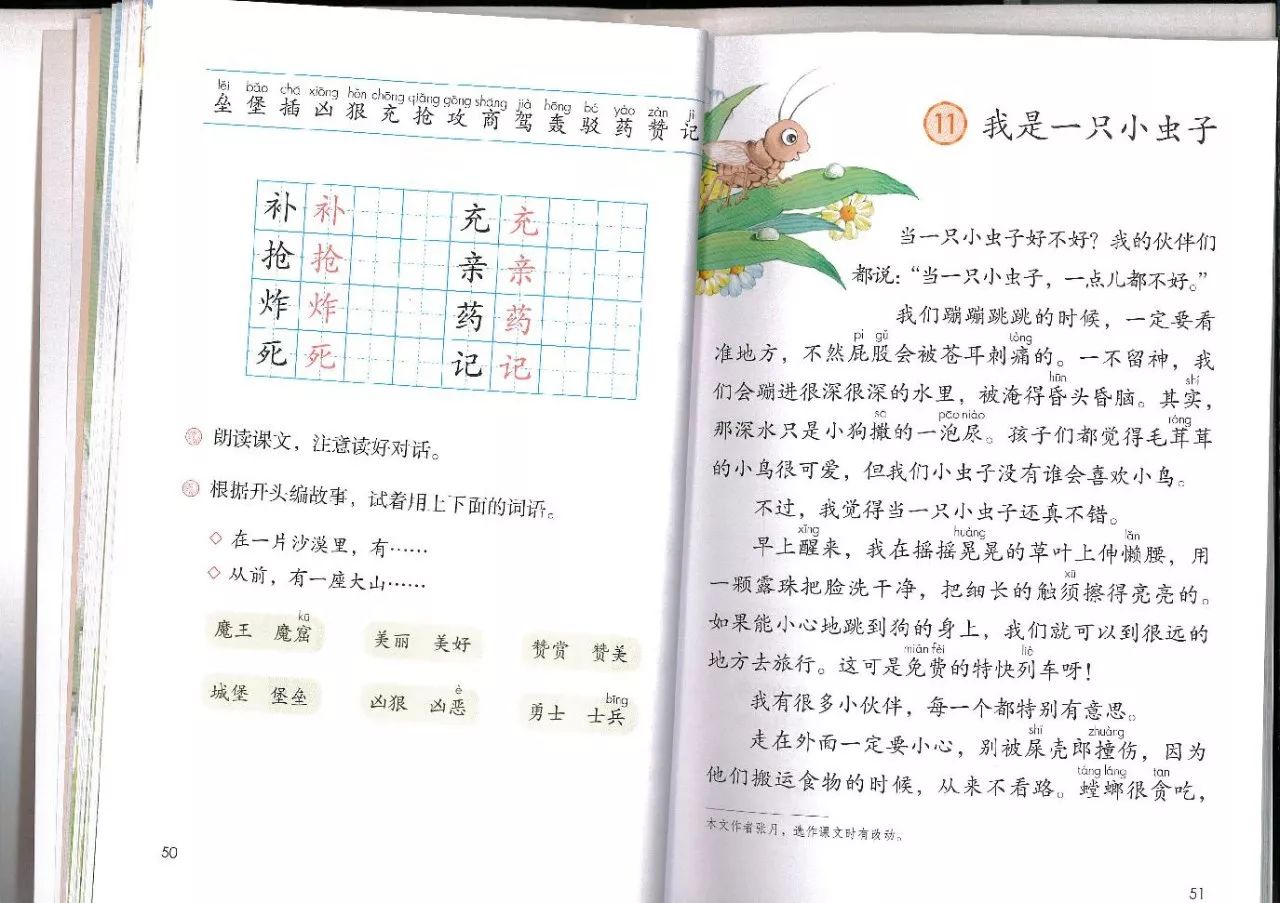 lěi bǎo chā xiōng hěn chōng qiǎng gōng shāng jià hōng bó yào zàn jì
垒 堡 插 凶 狠 充 抢 攻 商 驾 轰 驳 药 赞 记
补 补 充 充
抢 抢 亲 亲
炸 炸 药 药
死 死 记 记
朗读课文，注意读好对话。
根据开头编故事，试着用上下面的词语。
◇ 在一片沙漠里，有……
◇ 从前，有一座大山……
kū
魔王 魔窟 美丽 美好 赞赏 赞美
è bīng
城堡 堡垒 凶狠 凶恶 勇士 士兵
50
11 我是一只小虫子
当一只小虫子好不好？我的伙伴们
都说：“当一只小虫子，一点儿都不好。”
我们蹦蹦跳跳的时候，一定要看
pì gǔ tòng
准地方，不然屁股会被苍耳刺痛的。一不留神，我
hūn shí
们会蹦进很深很深的水里，被淹得昏头昏脑。其实，
sā pāo niào róng
那深水只是小狗撒的一泡尿。孩子们都觉得毛茸茸
的小鸟很可爱，但我们小虫子没有谁会喜欢小鸟。
不过，我觉得当一只小虫子还真不错。
xǐng huàng lǎn
早上醒来，我在摇摇晃晃的草叶上伸懒腰，用
xū
一颗露珠把脸洗干净，把细长的触须擦得亮亮的。
如果能小心地跳到狗的身上，我们就可以到很远的
miǎn fèi liè
地方去旅行。这可是免费的特快列车呀！
我有很多小伙伴，每一个都特别有意思。
shǐ zhuàng
走在外面一定要小心，别被屎壳郎撞伤，因为
táng láng tān
他们搬运食物的时候，从来不看路。螳螂很贪吃，
本文作者张月，选作课文时有改动。
51